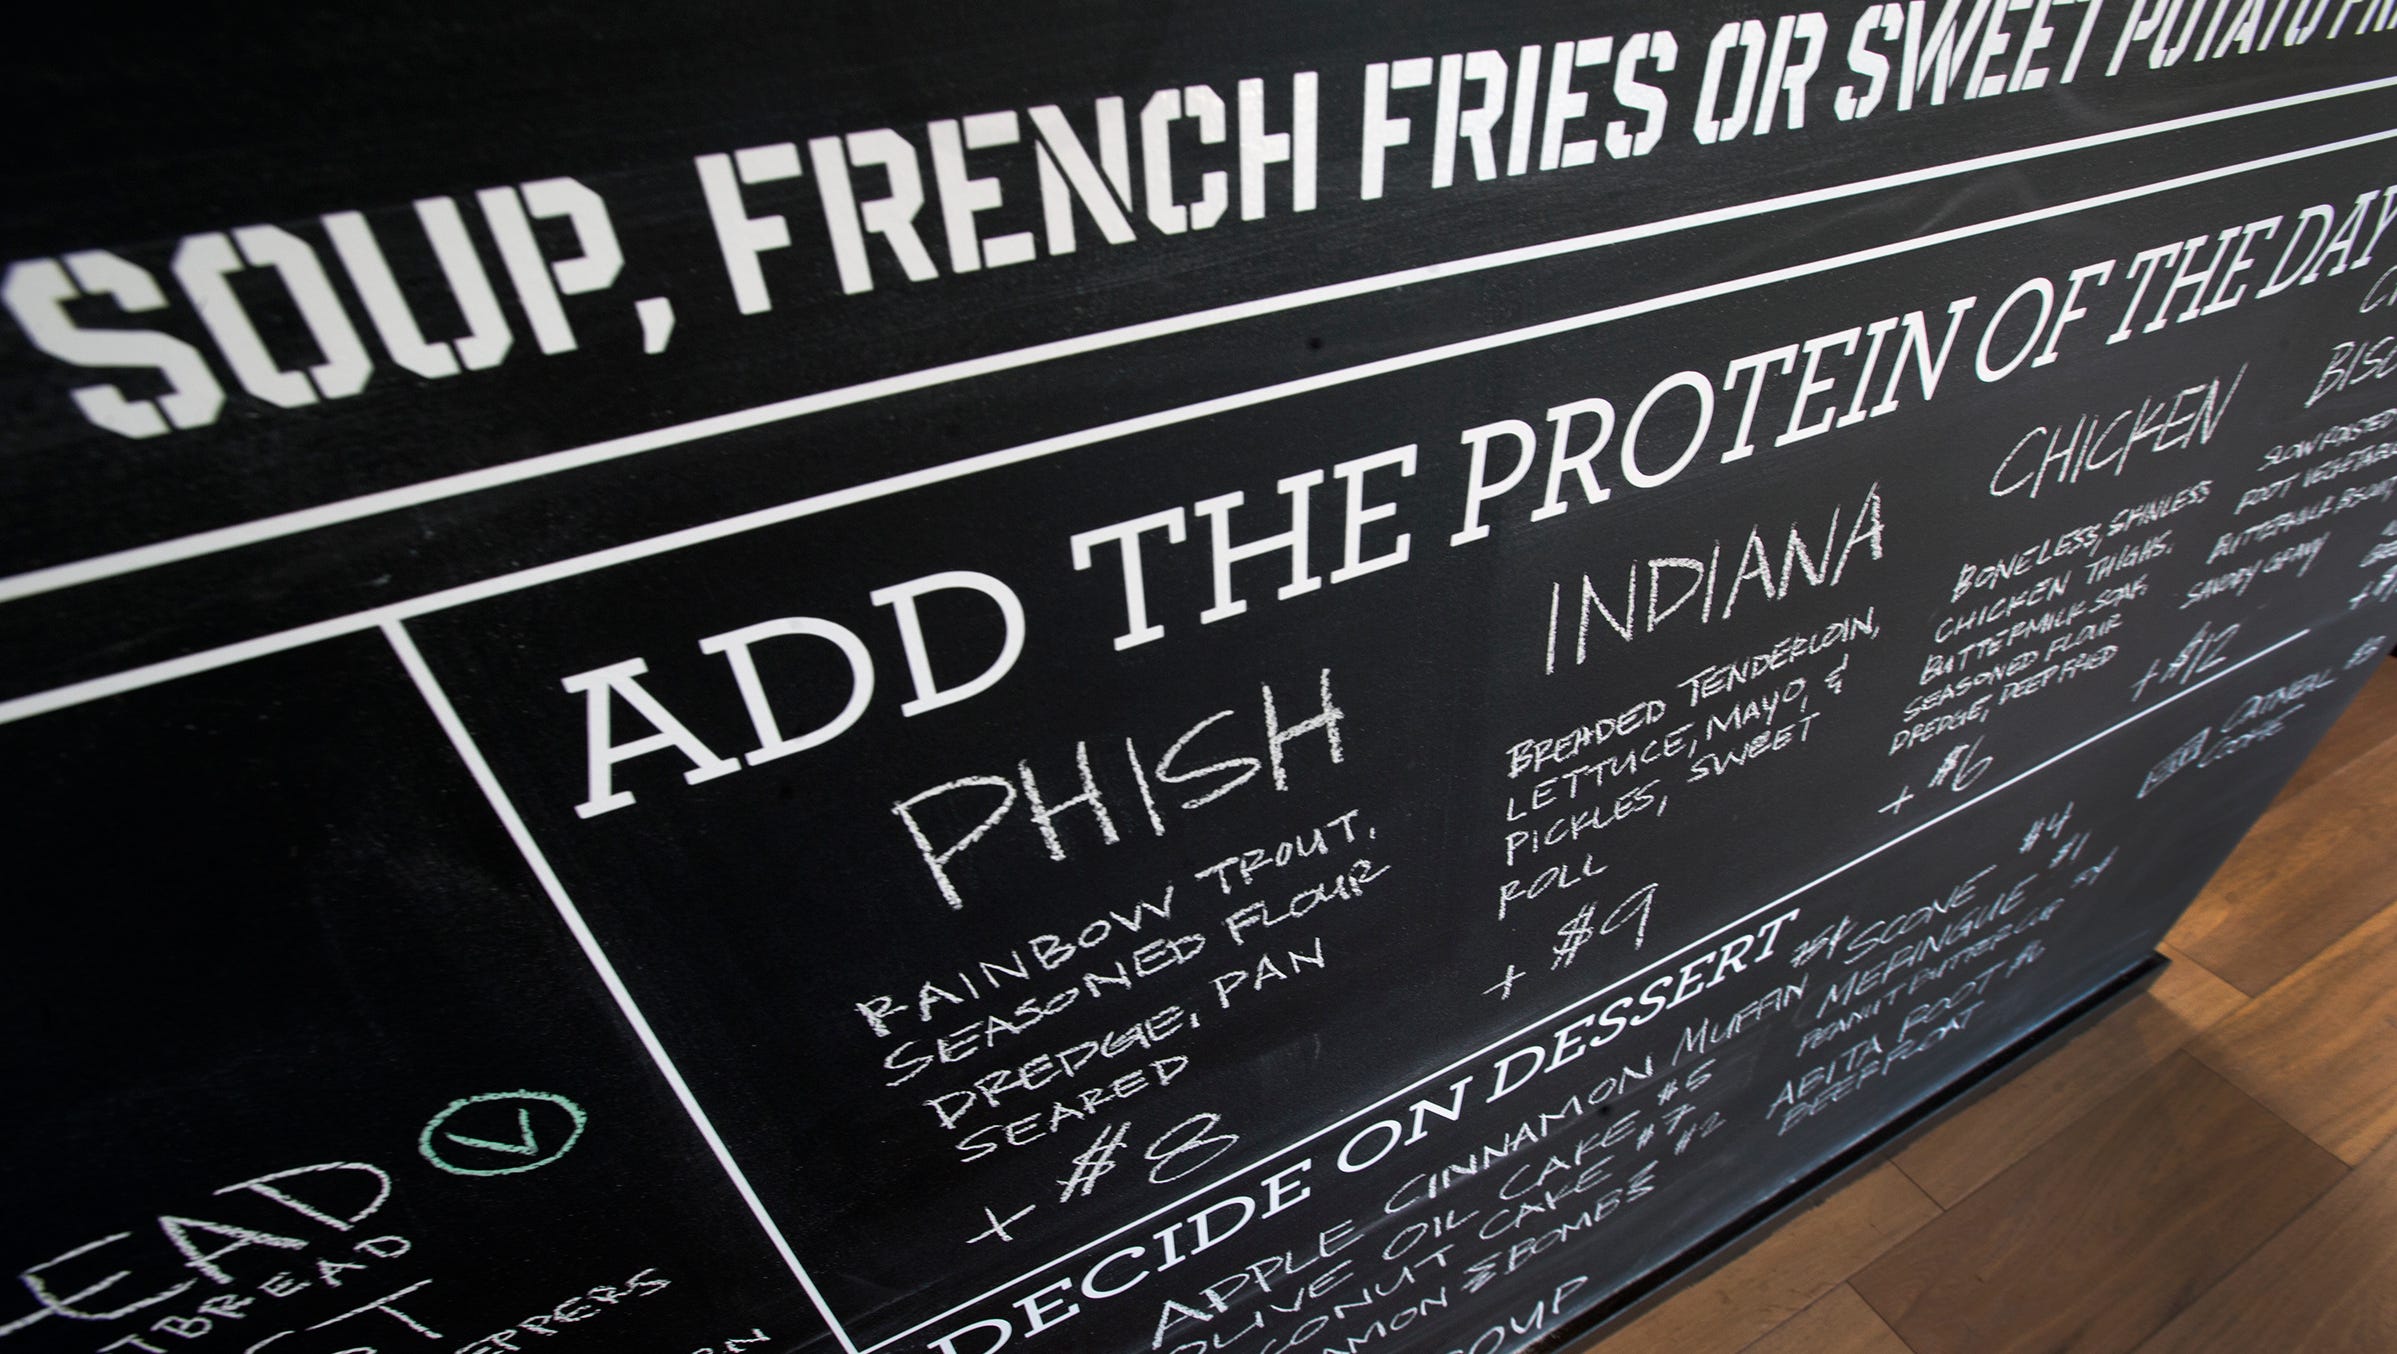 SOUP, FRENCH FRIES OR SWEET POTATO
ADD THE PROTEIN OF THE DAY
PHISH
RAINBOW TROUT,
SEASONED FLOUR
DREDGE, PAN
SEARED
+ $8
INDIANA
BREADED TENDERLOIN,
LETTUCE, MAYO, &
PICKLES, SWEET
ROLL
+ $9
CHICKEN
BONELESS, SKINLESS
CHICKEN THIGHS.
BUTTERMILK SOAK
SEASONED FLOUR
DREDGE, DEEP FRIED
+ $6
SLOW ROASTED
ROOT VEGETABLE
SAVORY GRAVY
+ $12
DECIDE ON DESSERT
APPLE CINNAMON MUFFIN
OLIVE OIL CAKE $5
COCONUT CAKE $7
BOMBS $2
SCONE $4
MERINGUE $1
PEANUT BUTTER CUP
ABITA ROOT
BEER FLOAT
OATMEAL $3
COOKIE
SOUP
EAD
TBREAD
EPPERS